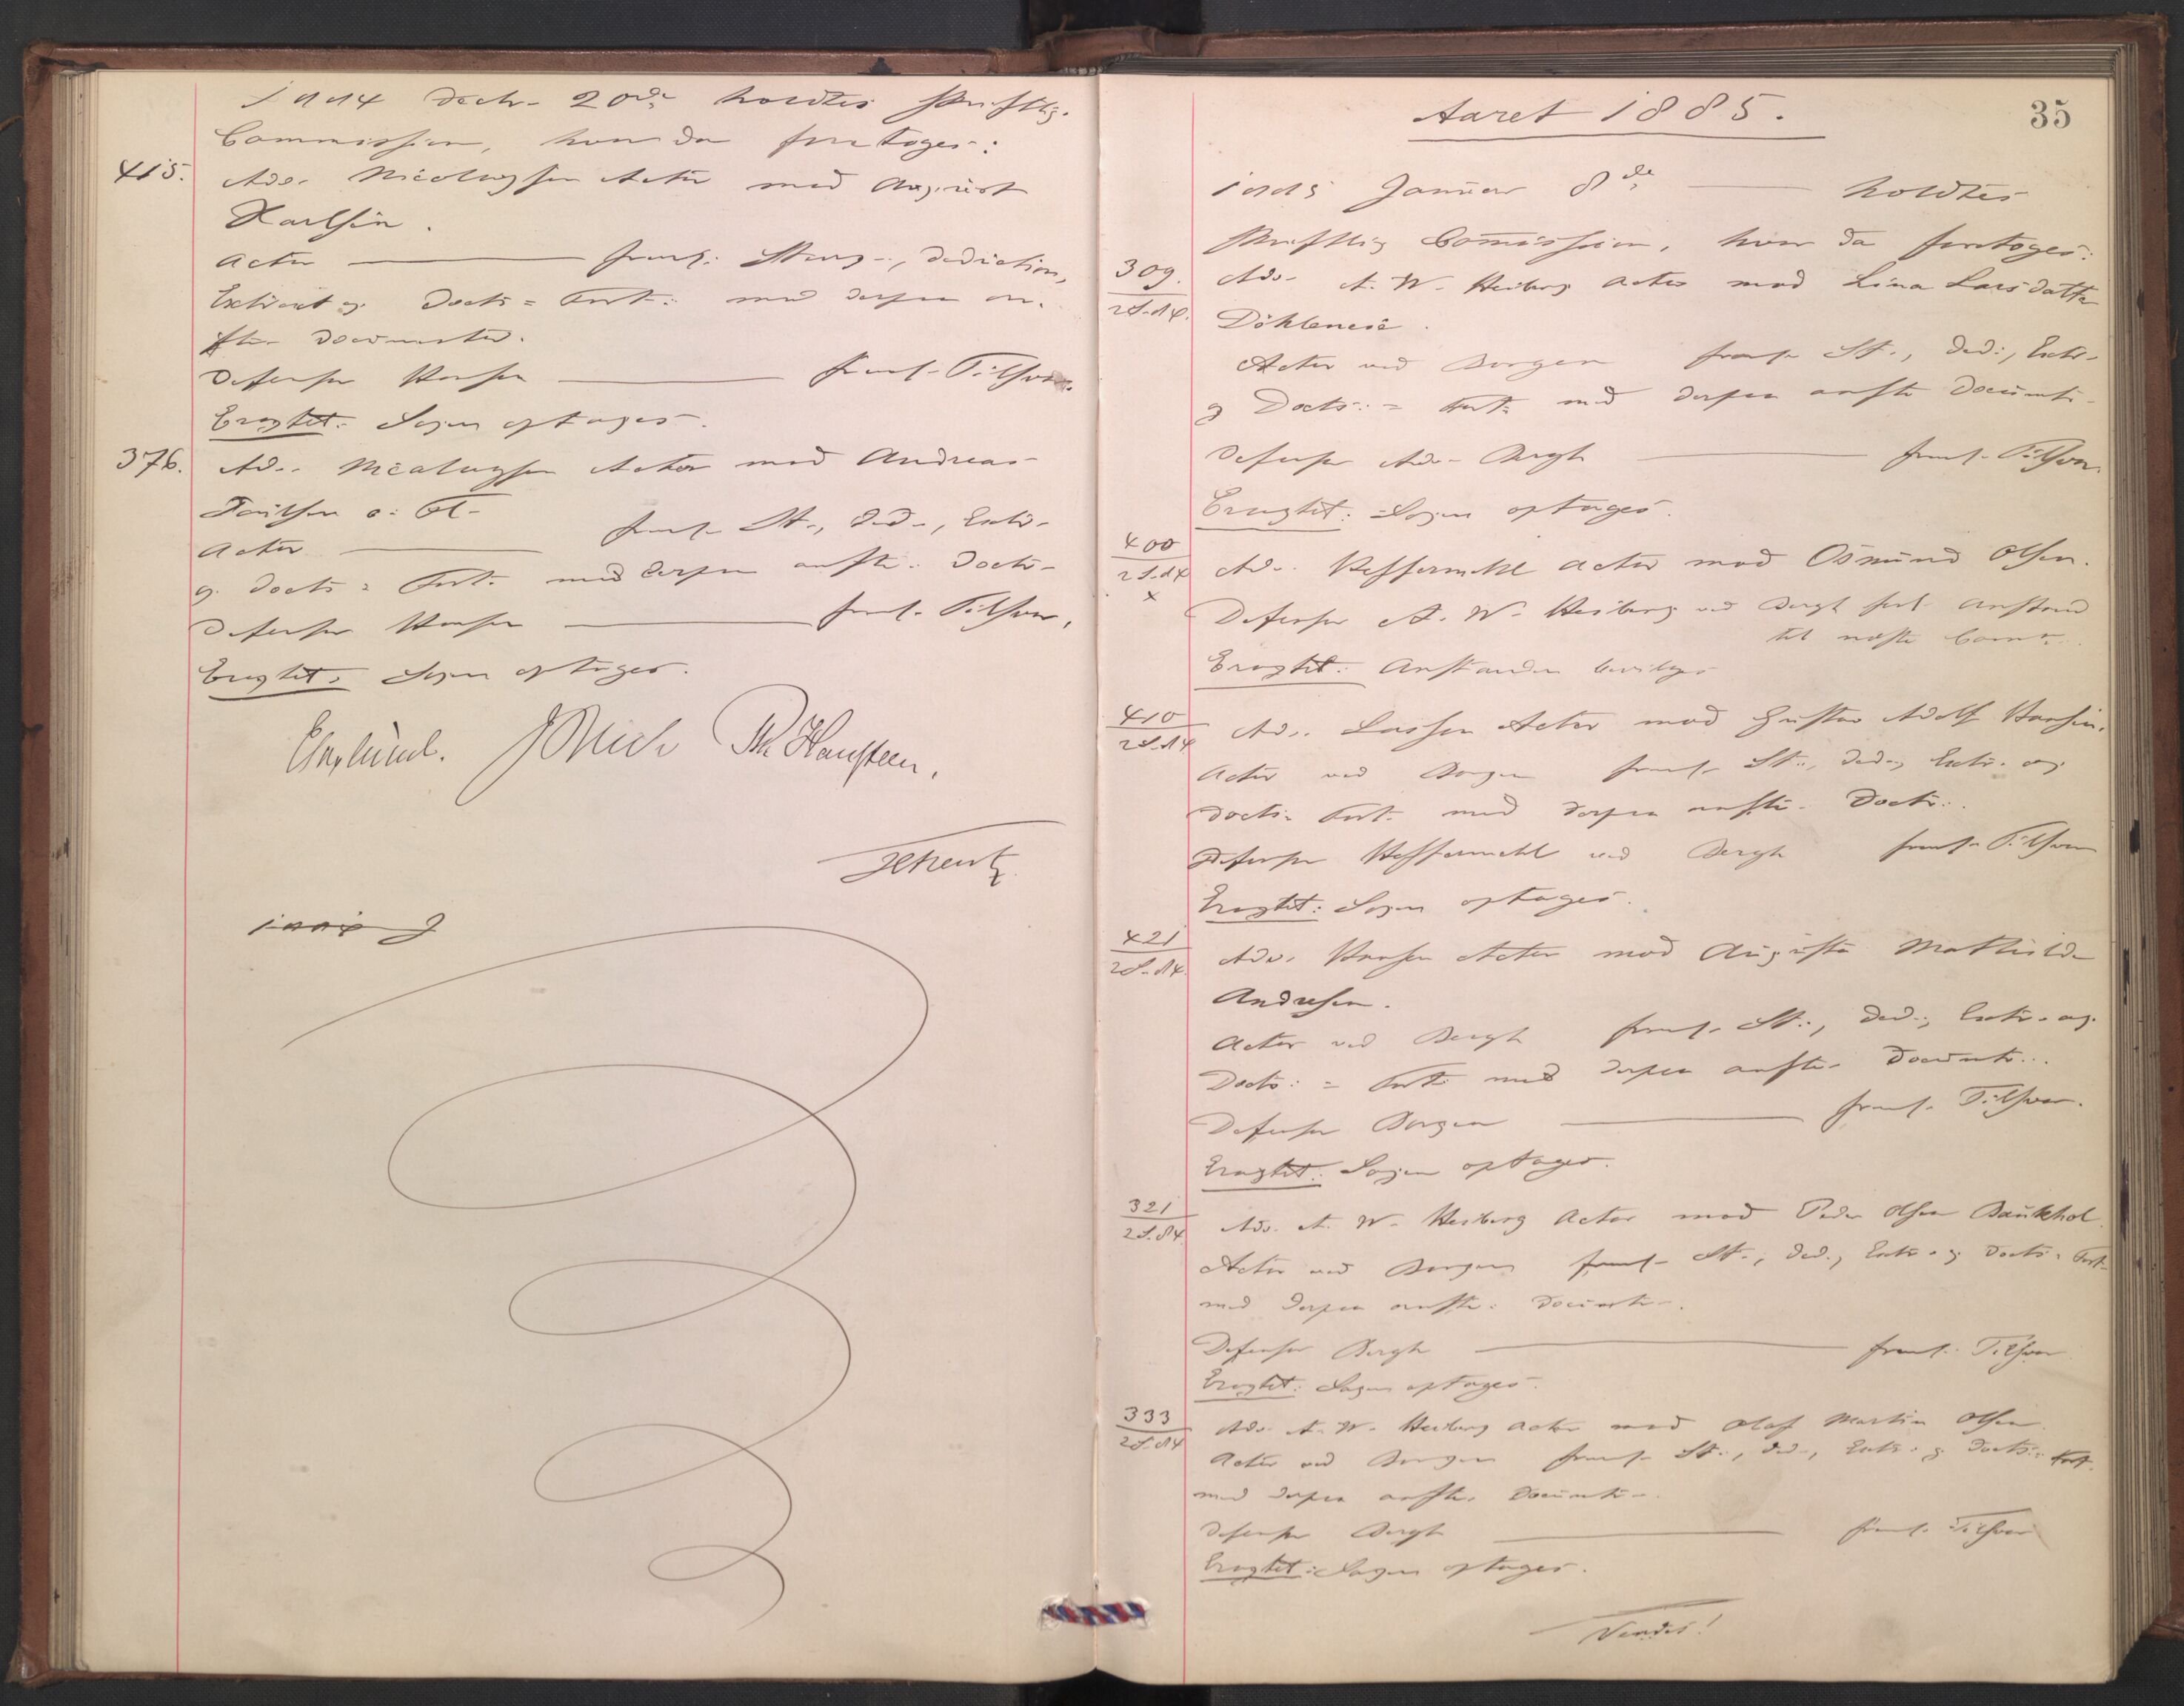 1884 Decbr 20de holdtes skriftlig
Commission, hvor da foretoges:
415. Adv. Nicolaysen Actor mod August
Karlsen.
Actor ——— freml. Stevn., Deduction,
Extract og Docts = Fort: med derpaa an-
førte Documenter.
Defensor Hansen ——— freml. Tilsvar.
Eragtet: Sagen optages.
376. Adv. Nicolaysen Actor mod Andreas
Actor ——— freml. St., Ded., Extr.
og Docts = Fort. med derpaa anførte Docts.
Defensor Hansen ——— freml. Tilsvar.
Eragtet: Sagen optages.
Th. Hansteen.
35
Aaret 1885.
1885 Januar 8de ——— holdtes
skriftlig Commission, hvor da foretoges:
309. Adv. A. W. Heiberg Actor mod Lina Larsdatter
2S.84.
Actor ved Borgen freml. St., Ded:, Extr.
og Docts: = Fort: med derpaa anførte Documtr.
Defensor Adv. Bergh ——— freml. Tilsvar.
Eragtet: Sagen optages.
400 Adv. Heffermehl Actor mod Osmund Olsen.
2S.84
x
Defensor A. W. Heiberg ved Bergh forl. Anstand
til næste Comm.
Eragtet: Anstanden bevilges
410 Adv. Lassen Actor mod Gustav Adolf Hansen.
2S.84
Actor ved Borgen freml. St., Ded., Extr. og
Docts. Fort. med derpaa anførte Doctr.
Defensor Heffermehl ved Bergh freml. Tilsvar
Eragtet: Sagen optages.
421 Adv. Hansen Actor mod Augusta Mathilde
2S.84.
Andresen.
Actor ved Bergh freml. St., Ded., Extr. og
Docts: = Fort. med derpaa anførte Documtr.
Defensor Borgen ——— freml. Tilsvar.
Eragtet: Sagen optages.
321 Adv. A. W. Heiberg Actor mod Peder Olsen Baukhol
2S.84.
Actor ved Borgen freml. St., Ded., Extr. og Docts = Fort.
med derpaa anførte Documtr.
Defensor Bergh ——— freml. Tilsvar
Eragtet: Sagen optages.
333 Adv. A. W. Heiberg Actor mod Olaf Martin Olsen
2S.84
Actor ved Borgen freml. St., Ded., Extr. og Docts: = Fort.
med derpaa anførte Documtr.
Defensor Bergh ——— freml. Tilsvar
Eragtet: Sagen optages.
Vendes!